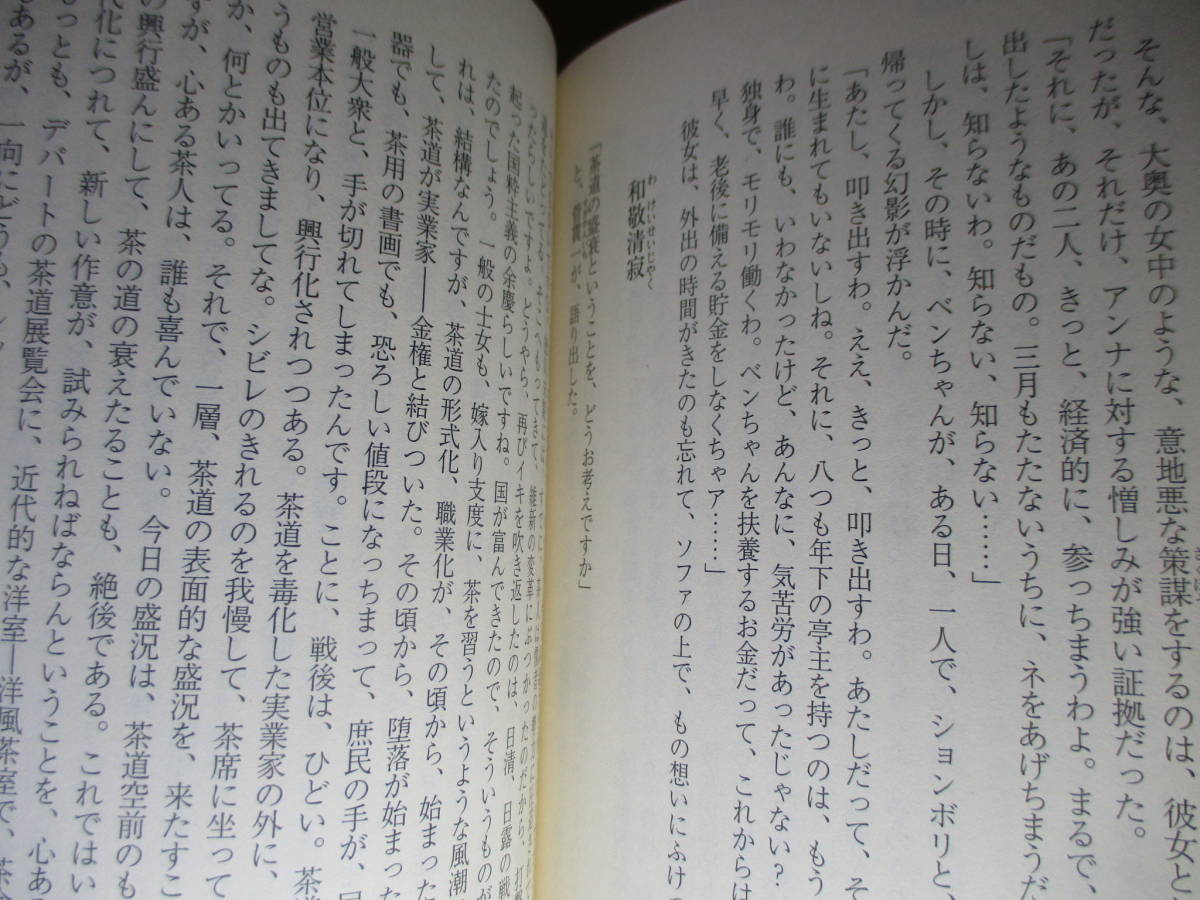 そんな、大奥の女中のような、意地悪な策謀をするのは、彼女と
だったが、それだけ、アンナに対する憎しみが強い証拠だった。
「それに、あの二人、きっと、経済的に、参っちまうわよ。まるで、
出したようなものだもの。三月もたたないうちに、ネをあげちまうだ
しは、知らないわ。知らない、知らない……」
しかし、その時に、ベンちゃんが、ある日、一人で、ションボリと、
帰ってくる幻影が浮かんだ。
「あたし、叩き出すわ。ええ、きっと、叩き出すわ。あたしだって、そ
に生まれてもいないしね。それに、八つも年下の亭主を持つのは、もう
わ。誰にも、いわなかったけど、あんなに、気苦労があったじゃない？
独身で、モリモリ働くわ。ベンちゃんを扶養するお金だって、これからは
早く、老後に備える貯金をしなくちゃア……」
彼女は、外出の時間がきたのも忘れて、ソファの上で、もの想いにふけ
和敬清寂
わけいせいじゃく
「茶道の盛衰ということを、どうお考えですか」
と、
が、語り出した。
つたらしいですよ。どうやら、再びイキを吹き返したのは、日清、日露の戦
起った国粋主義の余慶らしいですね。国が富んできたので、そういうものが
たのでしょう。一般の士女も、嫁入り支度に、茶を習うというような風潮
れは、結構なんですが、茶道の形式化、職業化が、その頃から、始まった
して、茶道が実業家――金権と結びついた。その頃から、堕落が始まった
器でも、茶用の書画でも、恐ろしい値段になっちまって、庶民の手が、
一般大衆と、手が切れてしまったんです。ことに、戦後は、ひどい。茶
営業本位になり、興行化されつつある。茶道を毒化した実業家の外に、
うものも出てきましてな。シビレのきれるのを我慢して、茶席に坐って
か、何とかいってる。それで、一層、茶道の表面的な盛況を、来たすこ
すが、心ある茶人は、誰も喜んでいない。今日の盛況は、茶道空前のも
の興行盛んにして、茶の道の衰えたることも、絶後である。これではい
代化につれて、新しい作意が、試みられねばならんということを、心あ
っとも、デパートの茶道展覧会に、近代的な洋室―洋風茶室で、茶会
あるが、一向にどうも、